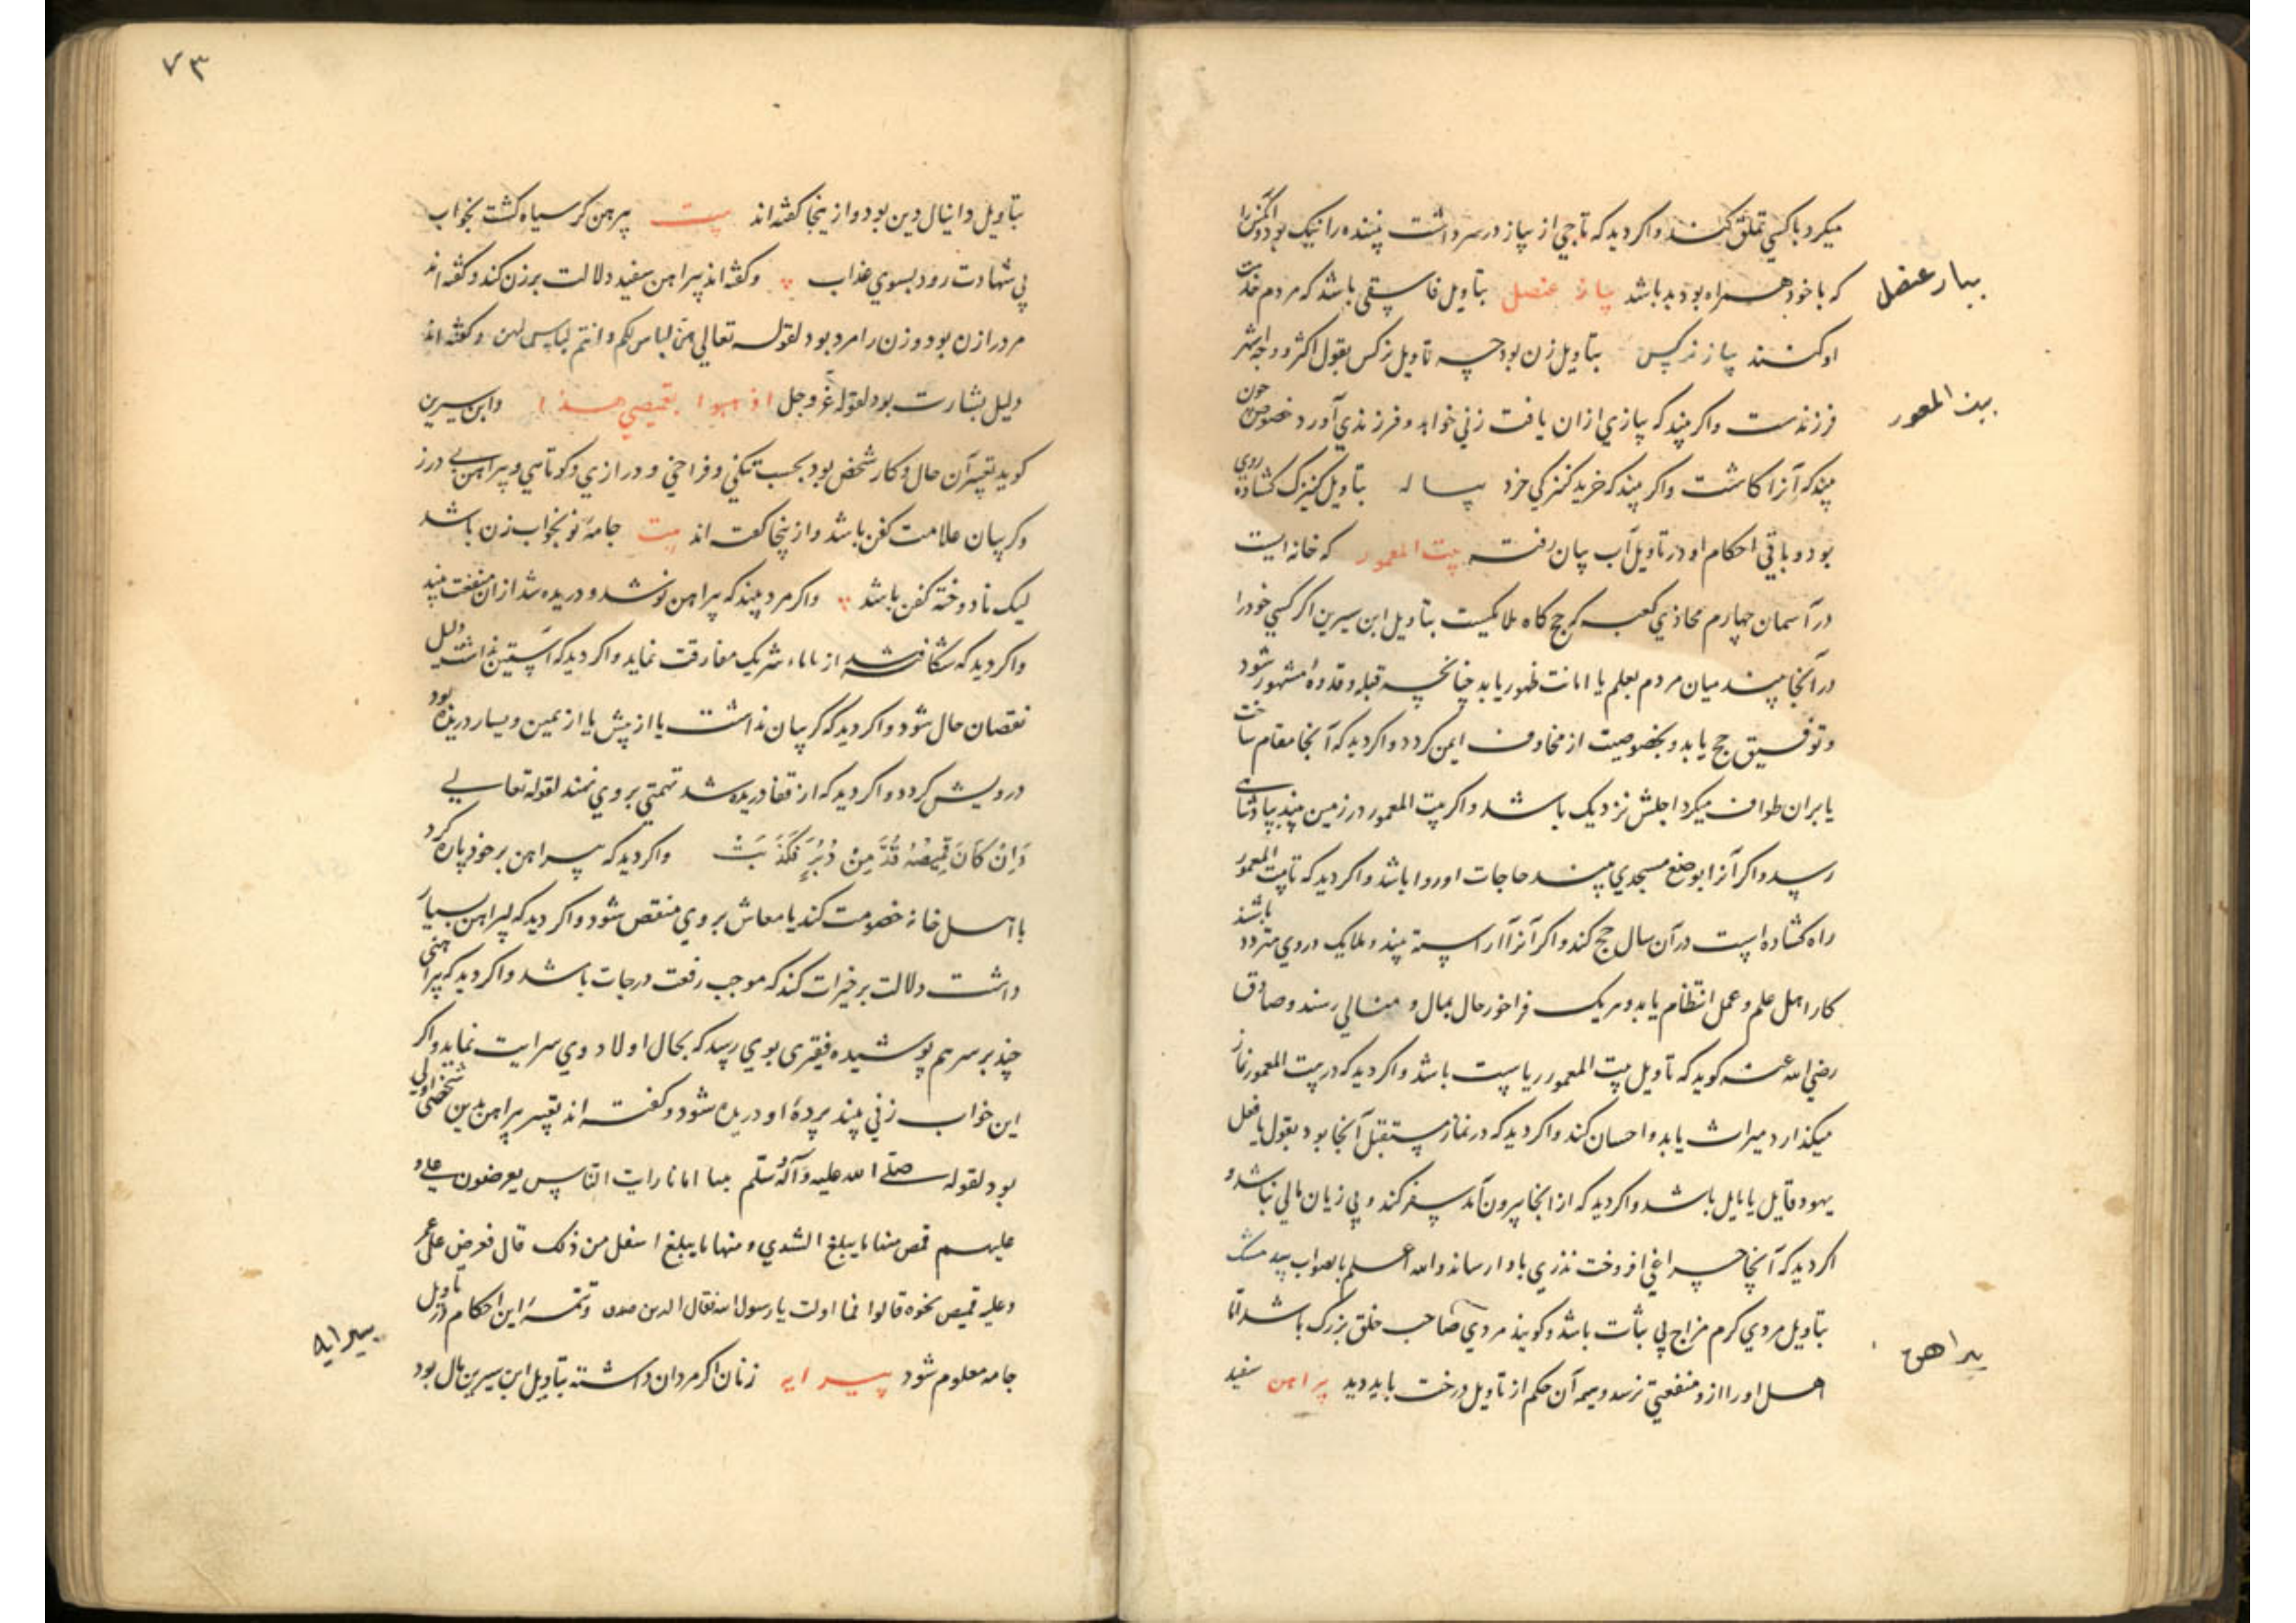 میکرد با کسی تملق کند و اکر دید که تاجی از پیاز در سر داشت بیننده را نیک بود
که با خود همراه بود بد باشد پیاز عنصل بتاویل فاسقی باشد که مردم خدمت
او کنند پیاز نرکس بتاویل زن بود چه تاویل نرکس بقول اکثر و وجه اشهر
فرزندست و اکر بیند که پیازی ازان یافت زنی خواهد و فرزندی آورد خصوصا چون
بیند که آنرا کاشت و اکر بیند که خرید کنیزکی خرد پیاله بتاویل کنیزک کشاده روی
بود و باقی احکام او در تاویل آب بیان رفت بیت المعمور که خانه ایست
در آسمان چهارم محاذی کعبه که حج کاه ملایکیست بتاویل ابن سیرین اکر کسی خود را
در آنجا بیند میان مردم بعلم یا امانت ظهور یابد چنانچه قبله و قدوه مشهور شود
و توفیق حج یابد و بخصوصیت از مخاوف ایمن کردد و اکر دید که آنجا مقام ساخت
یا بران طواف میکرد اجلش نزدیک باشد و اکر بیت المعمور در زمین بیند بپادشاهی
رسد و اکر آنرا بوضع مسجدی بیند حاجات او روا باشد و اکر دید که تا بیت المعمور
راه کشاده است در آن سال حج کند و اکر آنرا آراسته بیند و ملایک در وی متردد باشند
کار اهل علم و عمل انتظام یابد و هریک فراخور حال بمال و منالی رسند و صادق
رضی الله عنه کوید که تاویل بیت المعمور ریاست باشد و اکر دید که در بیت المعمور نماز
میکذارد میراث یابد و احسان کند و اکر دید که در نماز مستقبل آنجا بود بقول یا فعل
یهود قایل یا مایل باشد و اکر دید که از انجا بیرون آمد سفر کند و بی زیان مالی نباشد و
اکر دید که آنجا چراغی افروخت نذری باو ارساند والله اعلم بالصواب بید مشک
بتاویل مردی کرم مزاج بی ثبات باشد و کویند مردی صاحب خلق بزرک باشد اما
اهل او را ازو منفعتی نرسد و تتمه آن حکم از تاویل درخت باید دید پیراهن سفید
بیاز عنصل
بیت المعمور
پیراهن
۷۳
بتاویل دانیال دین بود و ازینجا کفته اند بیت پیرهن کر سیاه کشت بخواب
بی شهادت رود بسوی عذاب و کفته اند پیراهن سفید دلالت بر زن کند و کفته اند
مرد را زن بود و زن را مرد بود لقوله تعالی هن لباس لکم و انتم لباس لهن و کفته اند
دلیل بشارت بود لقوله عز وجل اذهبوا بقمیصی هذا و ابن سیرین
کوید پیراهن حال و کار شخص بود بحسب تنکی و فراخی و درازی و کوتاهی و پیراهن بی درز
و کریبان علامت کفن باشد و ازینجا کفته اند بیت جامه نو بخواب زن باشد
لیک نادوخته کفن باشد و اکر مرد بیند که پیراهن نو شد و دریده شد ازان منفعت بیند
و اکر دید که شکافته شد از شریک مفارقت نماید و اکر دید که آستین نداشت دلیل
نقصان حال شود و اکر دید که کریبان نداشت یا از پیش یا از یمین و یسار دریده بود
درویش کردد و اکر دید که از قفا دریده شد تهمتی بر وی نهند لقوله تعالی
وَاِنْ كَانَ قَمِيصُهُ قُدَّ مِنْ دُبُرٍ فَكَذَبَتْ و اکر دید که پیراهن بر خود پاره کرد
با اهل خانه خصومت کند یا معاش بر وی منقص شود و اکر دید که پیراهن بسیار
داشت دلالت بر خیرات کند که موجب رفعت درجات باشد و اکر دید که پیراهنی
چند بر سر هم پوشیده فقیری بوی رسد که بحال اولاد وی سرایت نماید و اکر
این خواب زنی بیند پرده او دریده شود و کفته اند پیراهن بدین شخص اولی
بود لقوله صلی الله علیه و آله و سلم بینا انا نایم رایت الناس یعرضون علی و
علیهم قمص منها ما یبلغ الثدی و منها ما یبلغ اسفل من ذلک قال فعرض علی عمر
و علیه قمیص یجره قالوا فما اولت یا رسول الله فقال الدین و تتمه این احکام از تاویل
جامه معلوم شود پیرایه زنان اکر مردان داشته بتاویل ابن سیرین مال بود
پیرایه